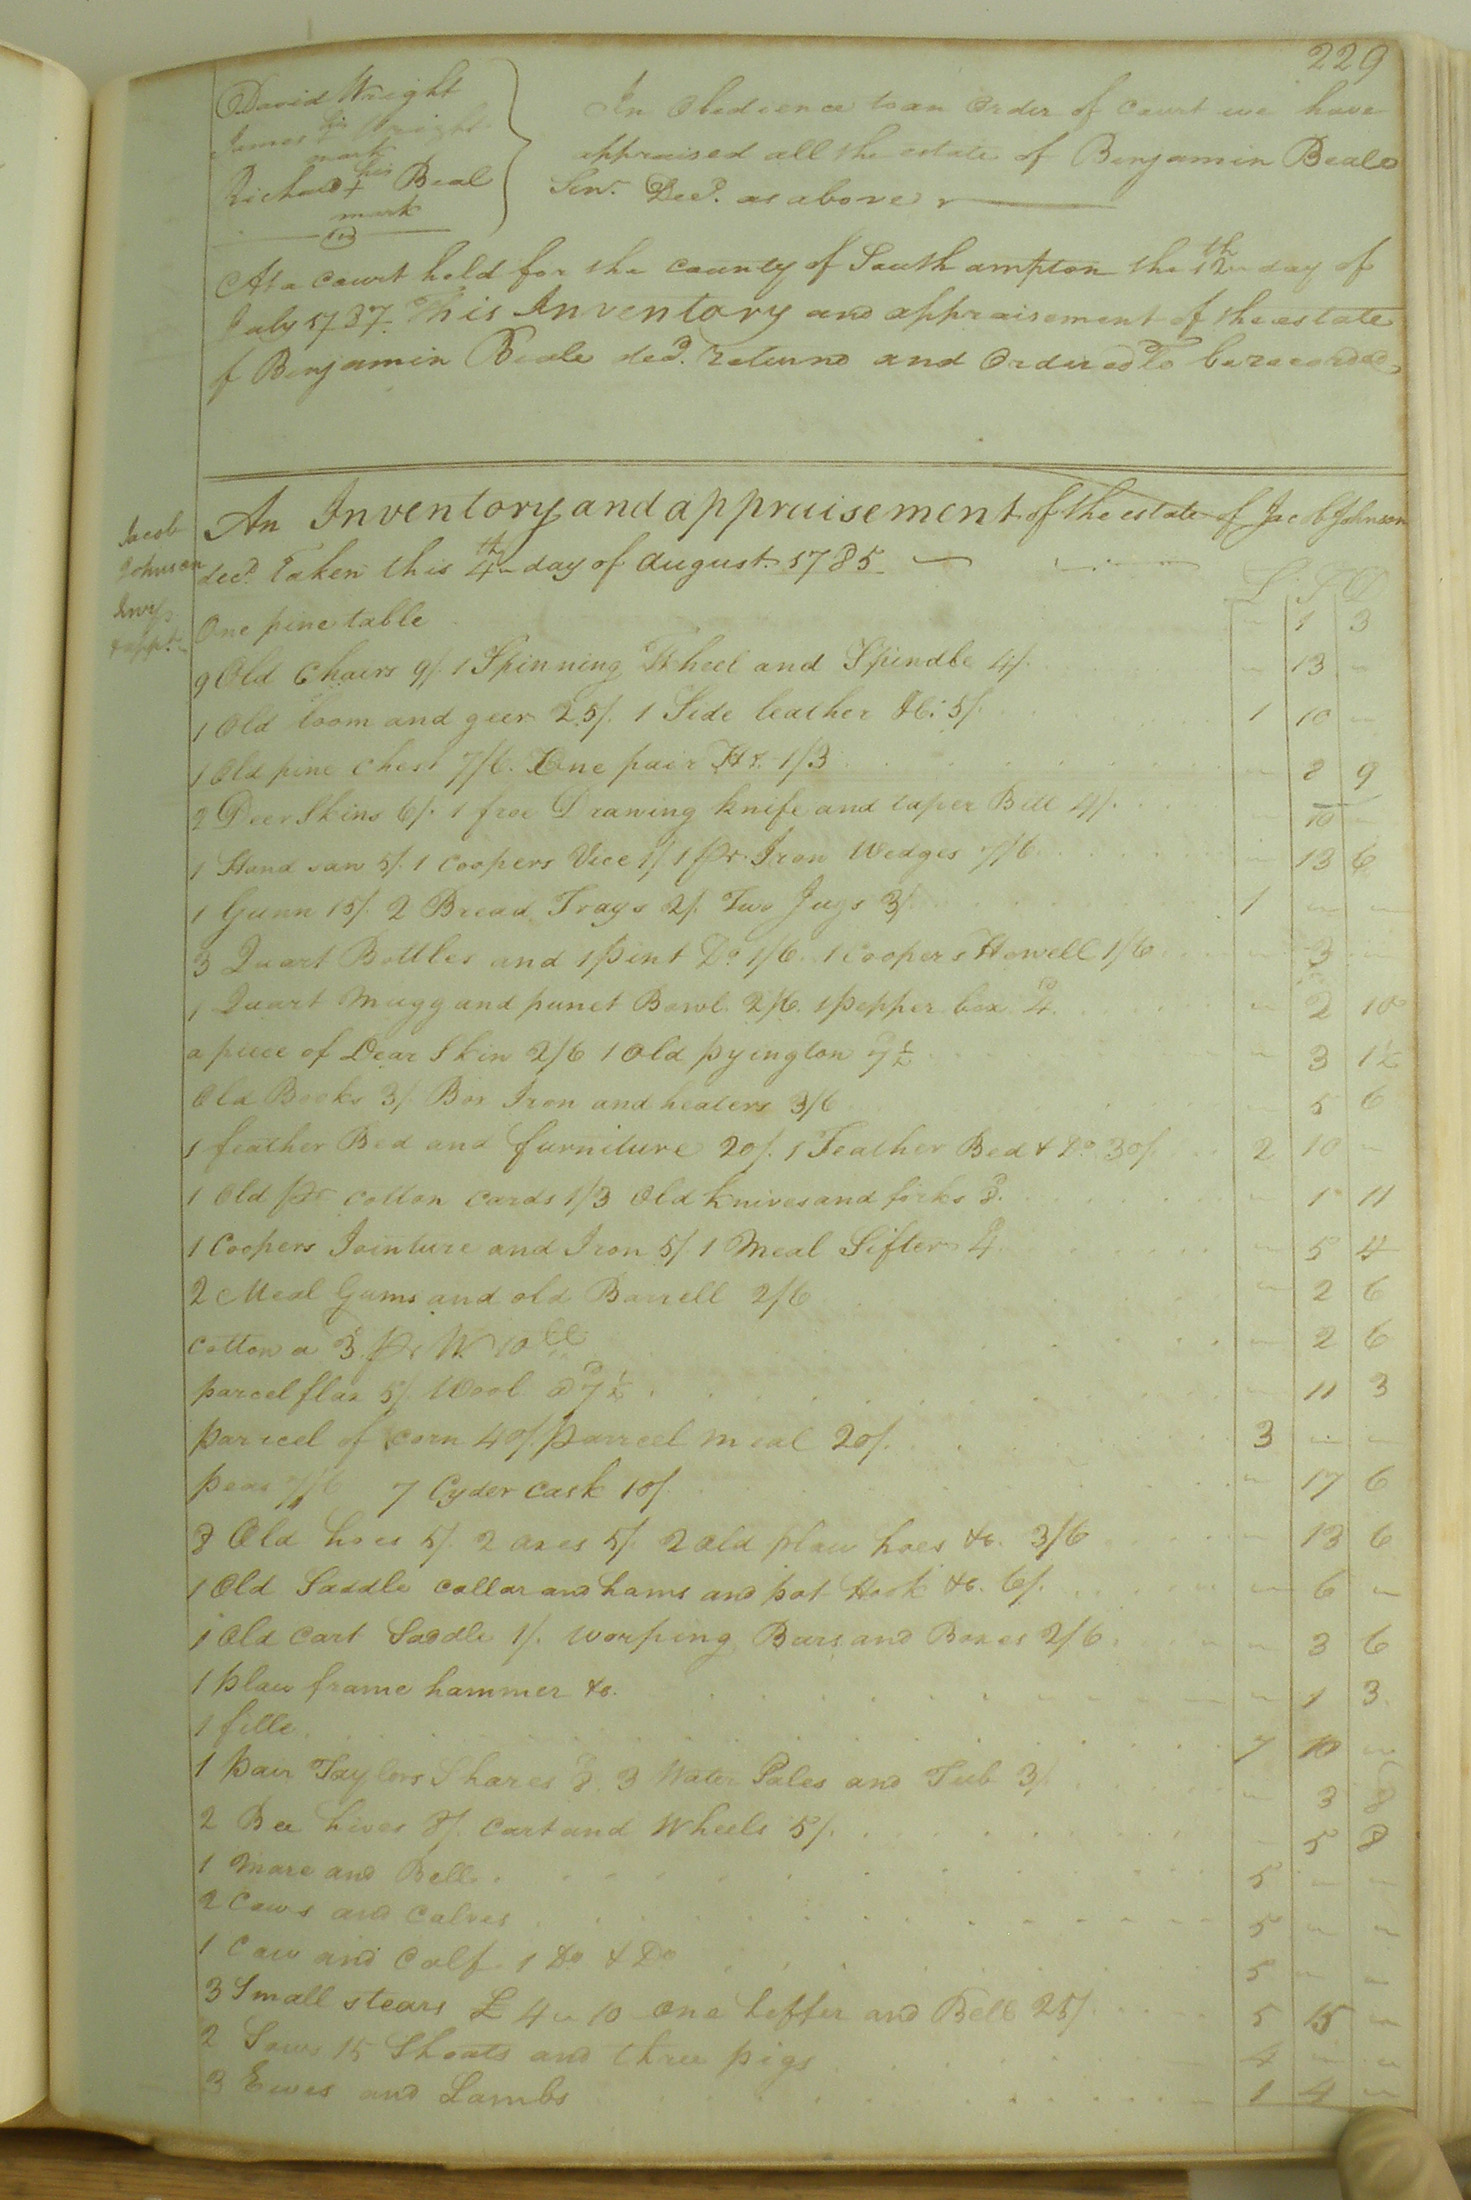 229
David Wright
James his Wright
mark
Richard his + Beal
mark
In Obedience to an Order of Court we have
appraised all the estate of Benjamin Beale
Senr. Decd. as above
At a Court held for the county of Southampton the 12th day of
July 1787. This Inventory and appraisement of the estate
of Benjamin Beale decd. returnd and Ordered to be recorded
Jacob
Johnson
Invy
& appt.
An Inventory and appraisement of the estate of Jacob Johnson
decd. Taken this 4th day of August 1785
£ S D
One pine table 1 3
9 Old Chairs 9/. 1 Spinning Wheel and Spindle 4/. 13
1 Old loom and geer 25/. 1 Side leather &c. 5/. 1 10
1 Old pine Chest 7/6. One pair 1/3 8 9
2 Deer Skins 6/. 1 froe Drawing knife and taper Bitt 4/. 10
1 Hand saw 5/. 1 Coopers Vice 1/ 1 pr. Iron Wedges 7/6 13 6
1 Gunn 15/. 2 Bread Trays 2/. Two Jugs 3/. 1
3 Quart Bottles and 1 pint Do. 1/6. 1 Coopers Howell 1/6 3
1 Quart Mugg and punct Bowl 2/6. 1 pepper box 4d 2 10
a piece of Dear Skin 2/6 1 Old pyington 7½ 3 1½
Old Books 3/. Box Iron and heaters 3/6 5 6
1 feather Bed and furniture 20/. 1 Feather Bed & Do 30/. 2 10
1 Old pr cotton Cards 1/3 Old knives and forks 8d. 1 11
1 Coopers Jointure and Iron 5/. 1 Meal Sifter 4d 5 4
2 Meal Gums and old Barrell 2/6 2 6
Cotton a 3d pr W 10 2 6
parcel flax 5/. Wool @ 7½d 11 3
parcel of Corn 40/. parcel meal 20/. 3
peas 7/6 7 Cyder Cask 10/. 17 6
8 Old hoes 5/. 2 axes 5/. 2 old plaw hoes &c. 3/6 13 6
1 Old Saddle collar and hams and pot Hook &c. 6/. 6
1 Old Cart Saddle 1/. worping Bars and Boxes 2/6 3 6
1 plaw frame hammer &c. 1 3
1 fille 7 10
1 pair Taylors Shares 8d. 3 Water Pales and Tub 3/. 3 8
2 Bee hives 8/. Cart and Wheels 5/. 5 8
1 Mare and Bell 5
2 Caws and Calves 5
1 Caw and Calf 1 Do & Do 5
3 Small stears £4 10 one heffer and Bell 25/. 5 15
2 Sows 15 Shoats and three pigs 4
3 Ewes and Lambs 1 4